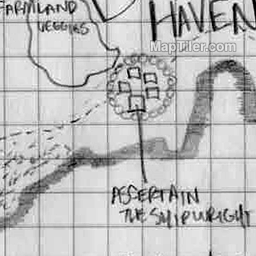 FARMLAND
VEGGIES
HAVEN
MapTiler.com
ASCERTAIN
THE SHIPWRIGHT